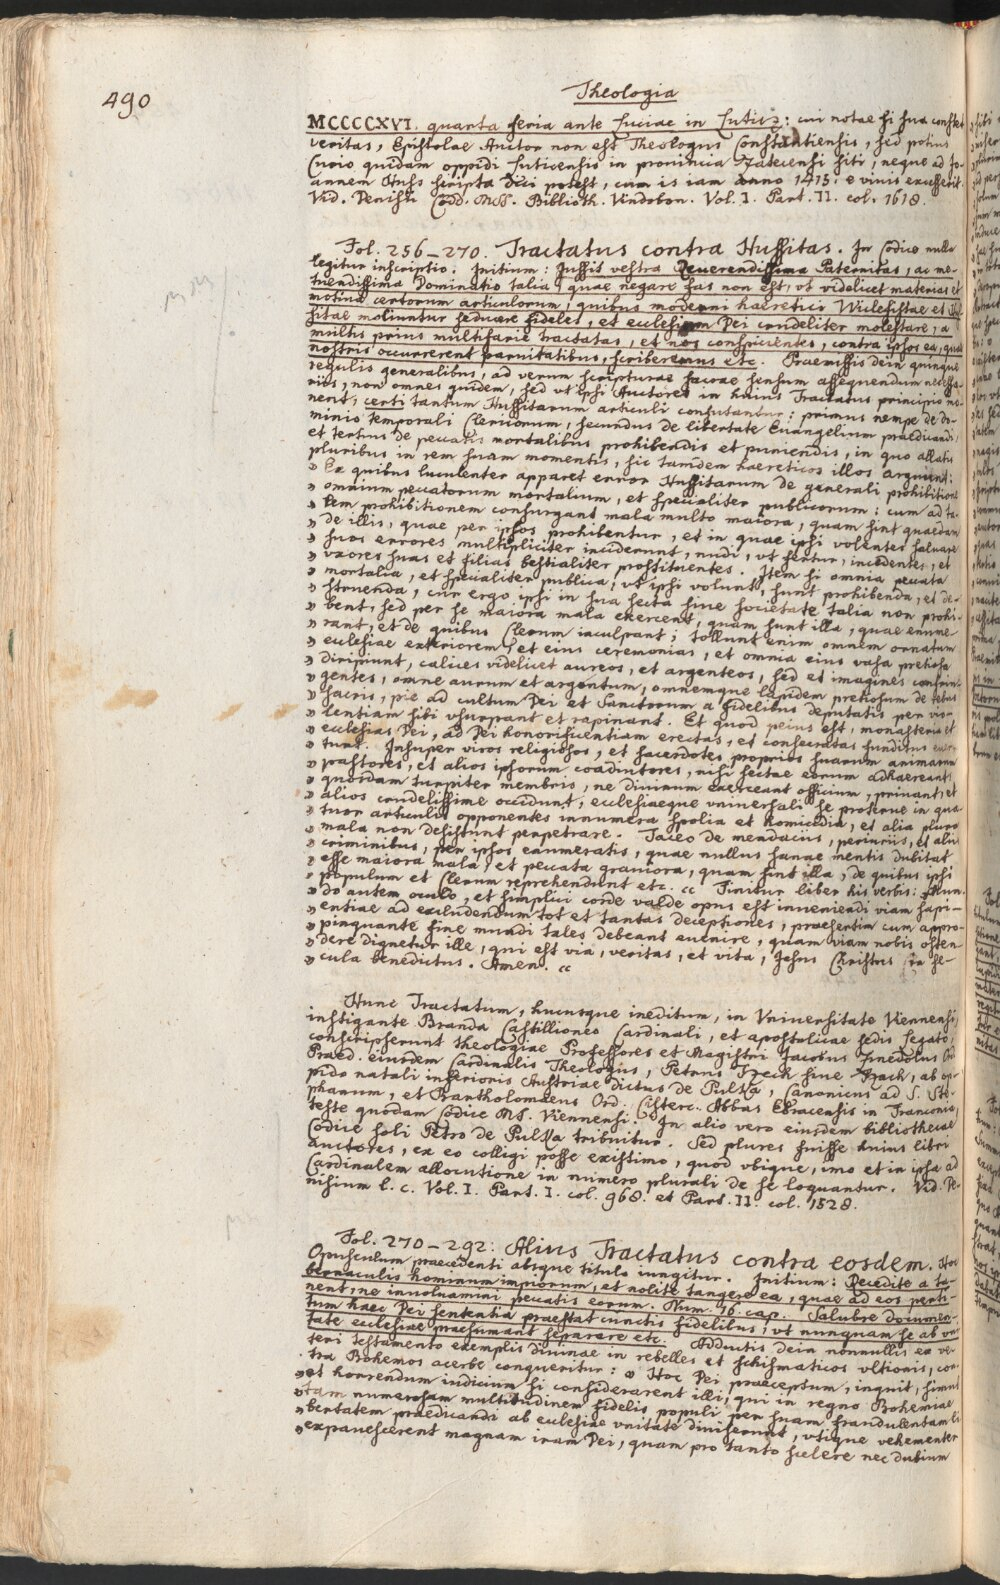 490
Theologia
MCCCCXVI. quarta feria ante Luciae in Lutitz: cui notae si sua constet
veritas, Epistolae Auctor non est Theologus Constantiensis, sed potius
Curio quidam oppidi Luticensis in provincia Zatecensi siti, neque ad Jo-
annem Huss scripta dici potest, cum is iam anno 1415. e vivis excesserit.
Vid. Denisii Codd. MSS. Biblioth. Vindobon. Vol. I. Part. II. col. 1618.
Fol. 256–270. Tractatus contra Hussitas. In Codice nulla
legitur inscriptio. Initium: Jussit vestra Reverendissima Paternitas, ac me-
tuendissima Dominatio talia, quae negare fas non est, vt videlicet materias et
motiva certorum articulorum, quibus moderni haeretici Wiclefistae et Hus-
sitae moliuntur seducere fideles, et ecclesiam Dei crudeliter molestare, a
multis prius multifarie tractatas, et nos conspicientes, contra ipsos ea, quae
nostris occurrerent parvitatibus, scriberemus etc. Praemissis dein quinque
regulis generalibus, ad verum scripturae sacrae sensum assequendum necessa-
riis, non omnes quidem, sed vt ipsi Auctores in huius Tractatus principio mo-
nent, certi tantum Hussitarum articuli confutantur: primus nempe de do-
minio temporali Clericorum, secundus de libertate Evangelium praedicandi,
et tertius de peccatis mortalibus prohibendis et puniendis, in quo allatis
pluribus in rem suam momentis, sic tandem haereticos illos arguunt:
» Ex quibus luculenter apparet error Hussitarum de generali prohibitione
» omnium peccatorum mortalium, et specialiter publicorum: cum ad ta-
» lem prohibitionem consurgant mala multo maiora, quam sint quaedam
» de illis, quae per ipsos prohibentur, et in quae ipsi volentes salvare
» suos errores multipliciter inciderunt, nudi, vt fertur, incedentes, et
» vxores suas et filias bestialiter prostituentes. Item si omnia peccata
» mortalia, et specialiter publica, vt ipsi volunt, sunt prohibenda, et de-
» struenda, cur ergo ipsi in sua secta sine societate talia non prohi-
» bent, sed per se maiora mala exercent, quam sunt illa, quae enume-
» rant, et de quibus Clerum inculpant; tollunt enim omnem ornatum
» ecclesiae exteriorem, et eius ceremonias, et omnia eius vasa pretiosa
» diripiunt, calices videlicet aureos, et argenteos, sed et imagines confrin-
» gentes, omne aurum et argentum, omnemque lapidem pretiosum de rebus
» sacris, pie ad cultum Dei et Sanctorum a fidelibus deputatis per vio-
» lentiam sibi vsurpant et rapinant. Et quod peius est, monasteria et
» ecclesias Dei, ad Dei honorificentiam erectas, et consecratas funditus ever-
» tunt. Insuper viros religiosos, et sacerdotes proprios suarum animarum
» pastores, et alios ipsorum coadiutores, nisi sectae eorum adhaereant,
» quosdam turpiter membris, ne divinum exerceant officium, privant, et
» alios crudelissime occidunt, ecclesiaeque vniversali se proterve in qua-
» tuor articulis opponentes innumera spolia et homicidia, et alia plura
» mala non desistunt perpetrare. Taceo de mendaciis, periuriis, et aliis
» criminibus, per ipsos enumeratis, quae nullus sanae mentis dubitat
» esse maiora mala, et peccata graviora, quam sint illa, de quibus ipsi
» populum et Clerum reprehendunt etc. « Finitur liber his verbis: Mun-
» do autem oculo, et simplici corde valde opus est inveniendi viam sapi-
» entiae ad excludendum tot et tantas deceptiones, praesertim cum appro-
» pinquante fine mundi tales debeant evenire, quam viam nobis osten-
» dere dignetur ille, qui est via, veritas, et vita, Jesus Christus in se-
» cula benedictus. Amen. «
Hunc Tractatum, hucusque ineditum, in Vniversitate Viennensi,
instigante Branda Castillioneo Cardinali, et apostolicae sedis Legato,
conscripserunt theologiae Professores et Magistri Jacobus Ord.
Praed. eiusdem Cardinalis Theologus, Petrus Tzech sive Czach, ab op-
pido natali inferioris Austriae dictus de Pulka, Canonicus ad S. Ste-
phanum, et Bartholomaeus Ord. Cisterc. Abbas Ebracensis in Franconia,
teste quodam Codice MS. Viennensi. In alio vero eiusdem bibliothecae
Codice soli Petro de Pulka tribuitur. Sed plures fuisse huius libri
auctores, ex eo colligi posse existimo, quod vbique, imo et in ipsa ad
Cardinalem allocutione in numero plurali de se loquantur. Vid. De-
nisium l. c. Vol. I. Part. I. col. 968. et Part. II. col. 1528.
Fol. 270–292: Alius Tractatus contra eosdem. Hoc
Opusculum praecedenti absque titulo iungitur. Initium: Recedite a ta-
bernaculis hominum impiorum, et nolite tangere ea, quae ad eos perti-
nent, ne involvamini peccatis eorum. Num. 16. cap. Salubre documen-
tum haec Dei sententia praestat cunctis fidelibus, vt nunquam se ab vni-
tate ecclesiae praesumant separare etc. Adductis dein nonnullis ex ve-
teri testamento exemplis divinae in rebelles et schismaticos vltionis, con-
tra Bohemos acerbe conqueritur: » Hoc Dei praeceptum, inquit, simul
» et horrendum iudicium si considerarent illi, qui in regno Bohemiae
» tam numerosam multitudinem fidelis populi per suam fraudulentam li-
» bertatem praedicandi ab ecclesiae vnitate diviserunt, vtique vehementer
» expavescerent magnam iram Dei, quam pro tanto scelere nec dubium